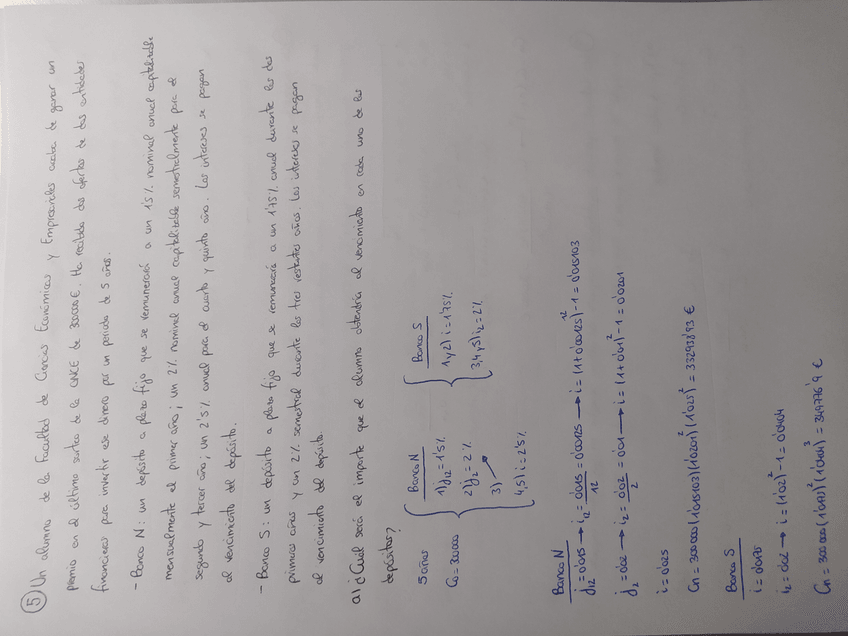 ⑤ Un alumno de la Facultad de Ciencias Económicas y Empresariales acaba de ganar un
premio en el último sorteo de la ONCE de 300000€. Ha recibido dos ofertas de dos entidades
financieras para invertir ese dinero por un periodo de 5 años.
- Banco N: un depósito a plazo fijo que se remunerará a un 1'5% nominal anual capitalizable
mensualmente el primer año; un 2% nominal anual capitalizable semestralmente para el
segundo y tercer año; un 2'5% anual para el cuarto y quinto año. Los intereses se pagan
al vencimiento del depósito.
- Banco S: un depósito a plazo fijo que se remunerará a un 1'75% anual durante los dos
primeros años y un 2% semestral durante los tres restantes años. Los intereses se pagan
al vencimiento del depósito.
a) ¿Cuál será el importe que el alumno obtendría al vencimiento en cada uno de los
depósitos?
5 años
C₀ = 300000
Banco N
1) J₁₂ = 1'5%
2) J₂ = 2%
3)
4,5) i = 2'5%
Banco S
1 y 2) i = 1'75%
3,4 y 5) i₂ = 2%
Banco N
J₁₂ = 0'015 → i₁₂ = 0'015/12 = 0'00125 → i = (1+0'00125)¹² - 1 = 0'015103
J₂ = 0'02 → i₂ = 0'02/2 = 0'01 → i = (1+0'01)² - 1 = 0'0201
i = 0'025
Cn = 300000 (1'015103)(1'0201)² (1'025)² = 332938'93 €
Banco S
i = 0'0175
i₂ = 0'02 → i = (1'02)² - 1 = 0'0404
Cn = 300000 (1'0175)² (1'0404)³ = 349776'9 €